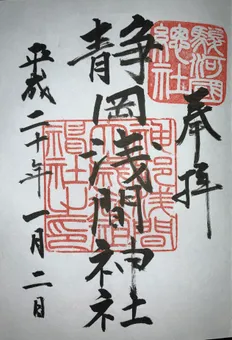 駿河國
總社
奉拝
静岡浅間神社
神部浅間
神社之印
平成二十年一月二日